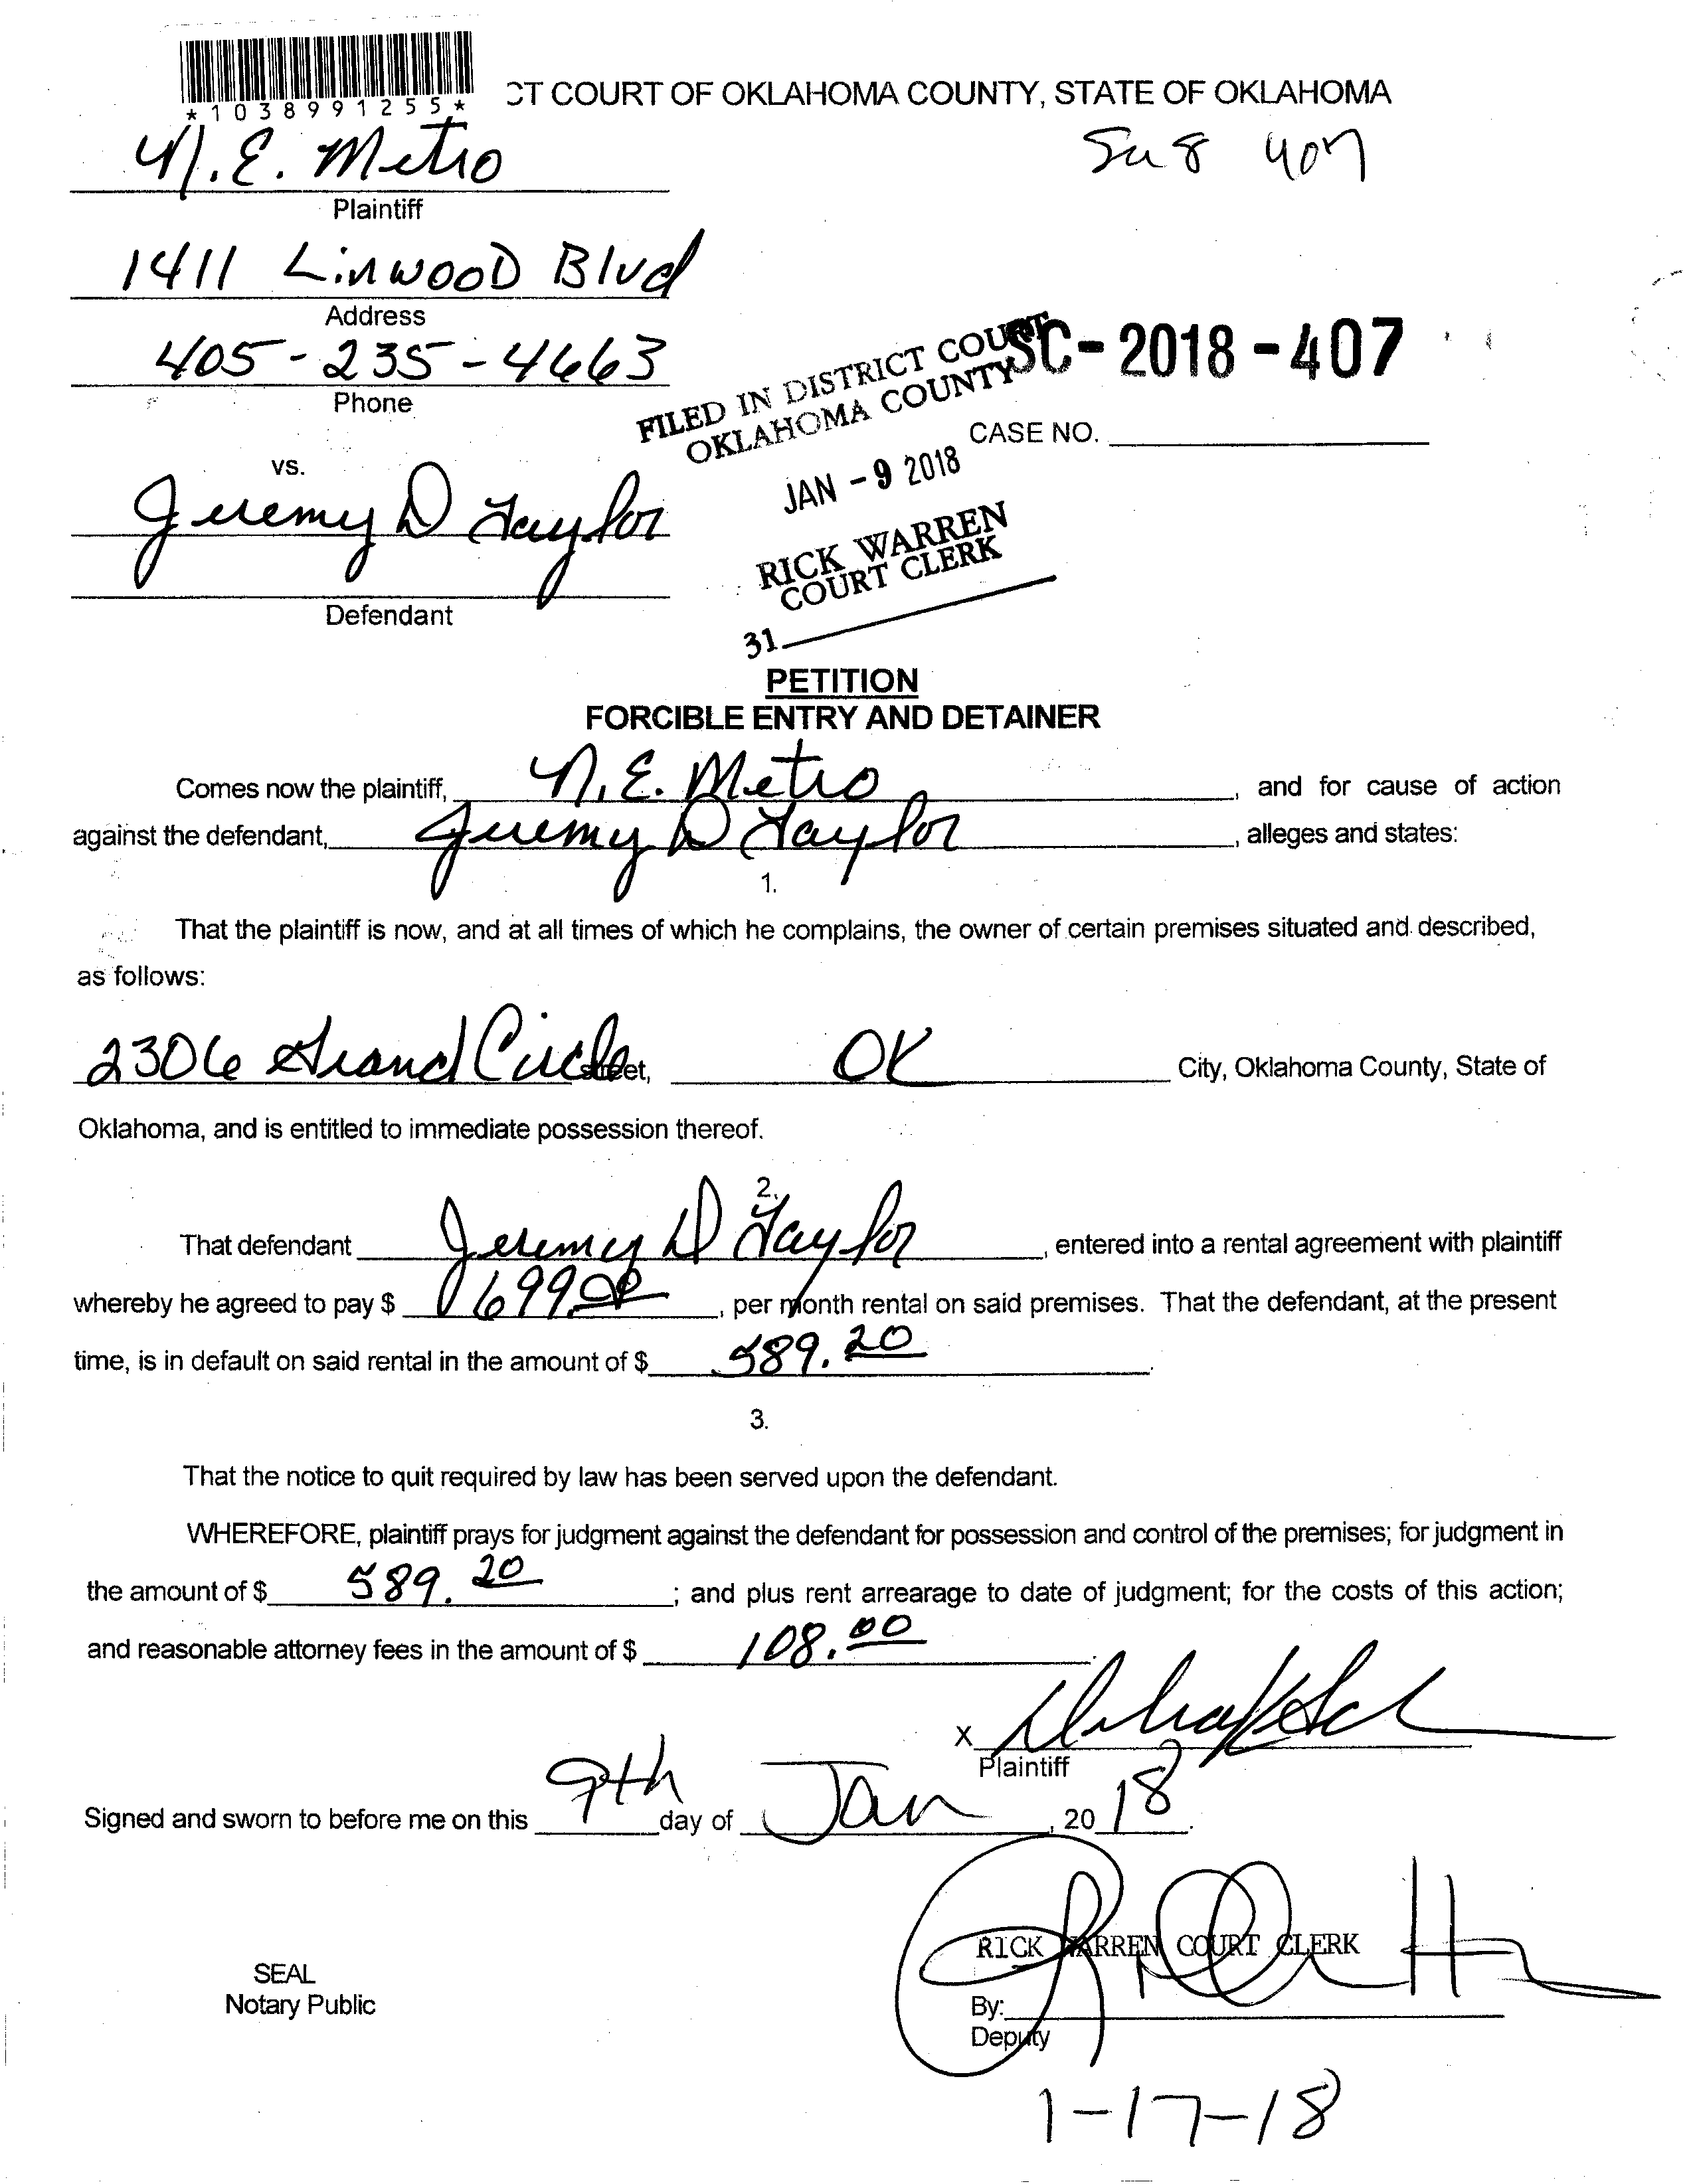 *1038991255*
CT COURT OF OKLAHOMA COUNTY, STATE OF OKLAHOMA
N.E. Metro
Plaintiff
1411 Linwood Blvd
Address
405-235-4663
Phone
FILED IN DISTRICT COURT
OKLAHOMA COUNTY
SC-2018-407
CASE NO.
JAN -9 2018
vs.
Jeremy D Taylor
RICK WARREN
COURT CLERK
Defendant
31
PETITION
FORCIBLE ENTRY AND DETAINER
Comes now the plaintiff, N.E. Metro, and for cause of action
against the defendant, Jeremy D Taylor, alleges and states:
1.
That the plaintiff is now, and at all times of which he complains, the owner of certain premises situated and described,
as follows:
2306 Grand Circle street, OK City, Oklahoma County, State of
Oklahoma, and is entitled to immediate possession thereof.
2.
That defendant Jeremy D Taylor, entered into a rental agreement with plaintiff
whereby he agreed to pay $ 699.00, per month rental on said premises. That the defendant, at the present
time, is in default on said rental in the amount of $ 589.20.
3.
That the notice to quit required by law has been served upon the defendant.
WHEREFORE, plaintiff prays for judgment against the defendant for possession and control of the premises; for judgment in
the amount of $ 589.20; and plus rent arrearage to date of judgment; for the costs of this action;
and reasonable attorney fees in the amount of $ 108.00.
X
Plaintiff
Signed and sworn to before me on this 9th day of Jan, 20 18.
RICK WARREN COURT CLERK
SEAL
Notary Public
By:
Deputy
1-17-18